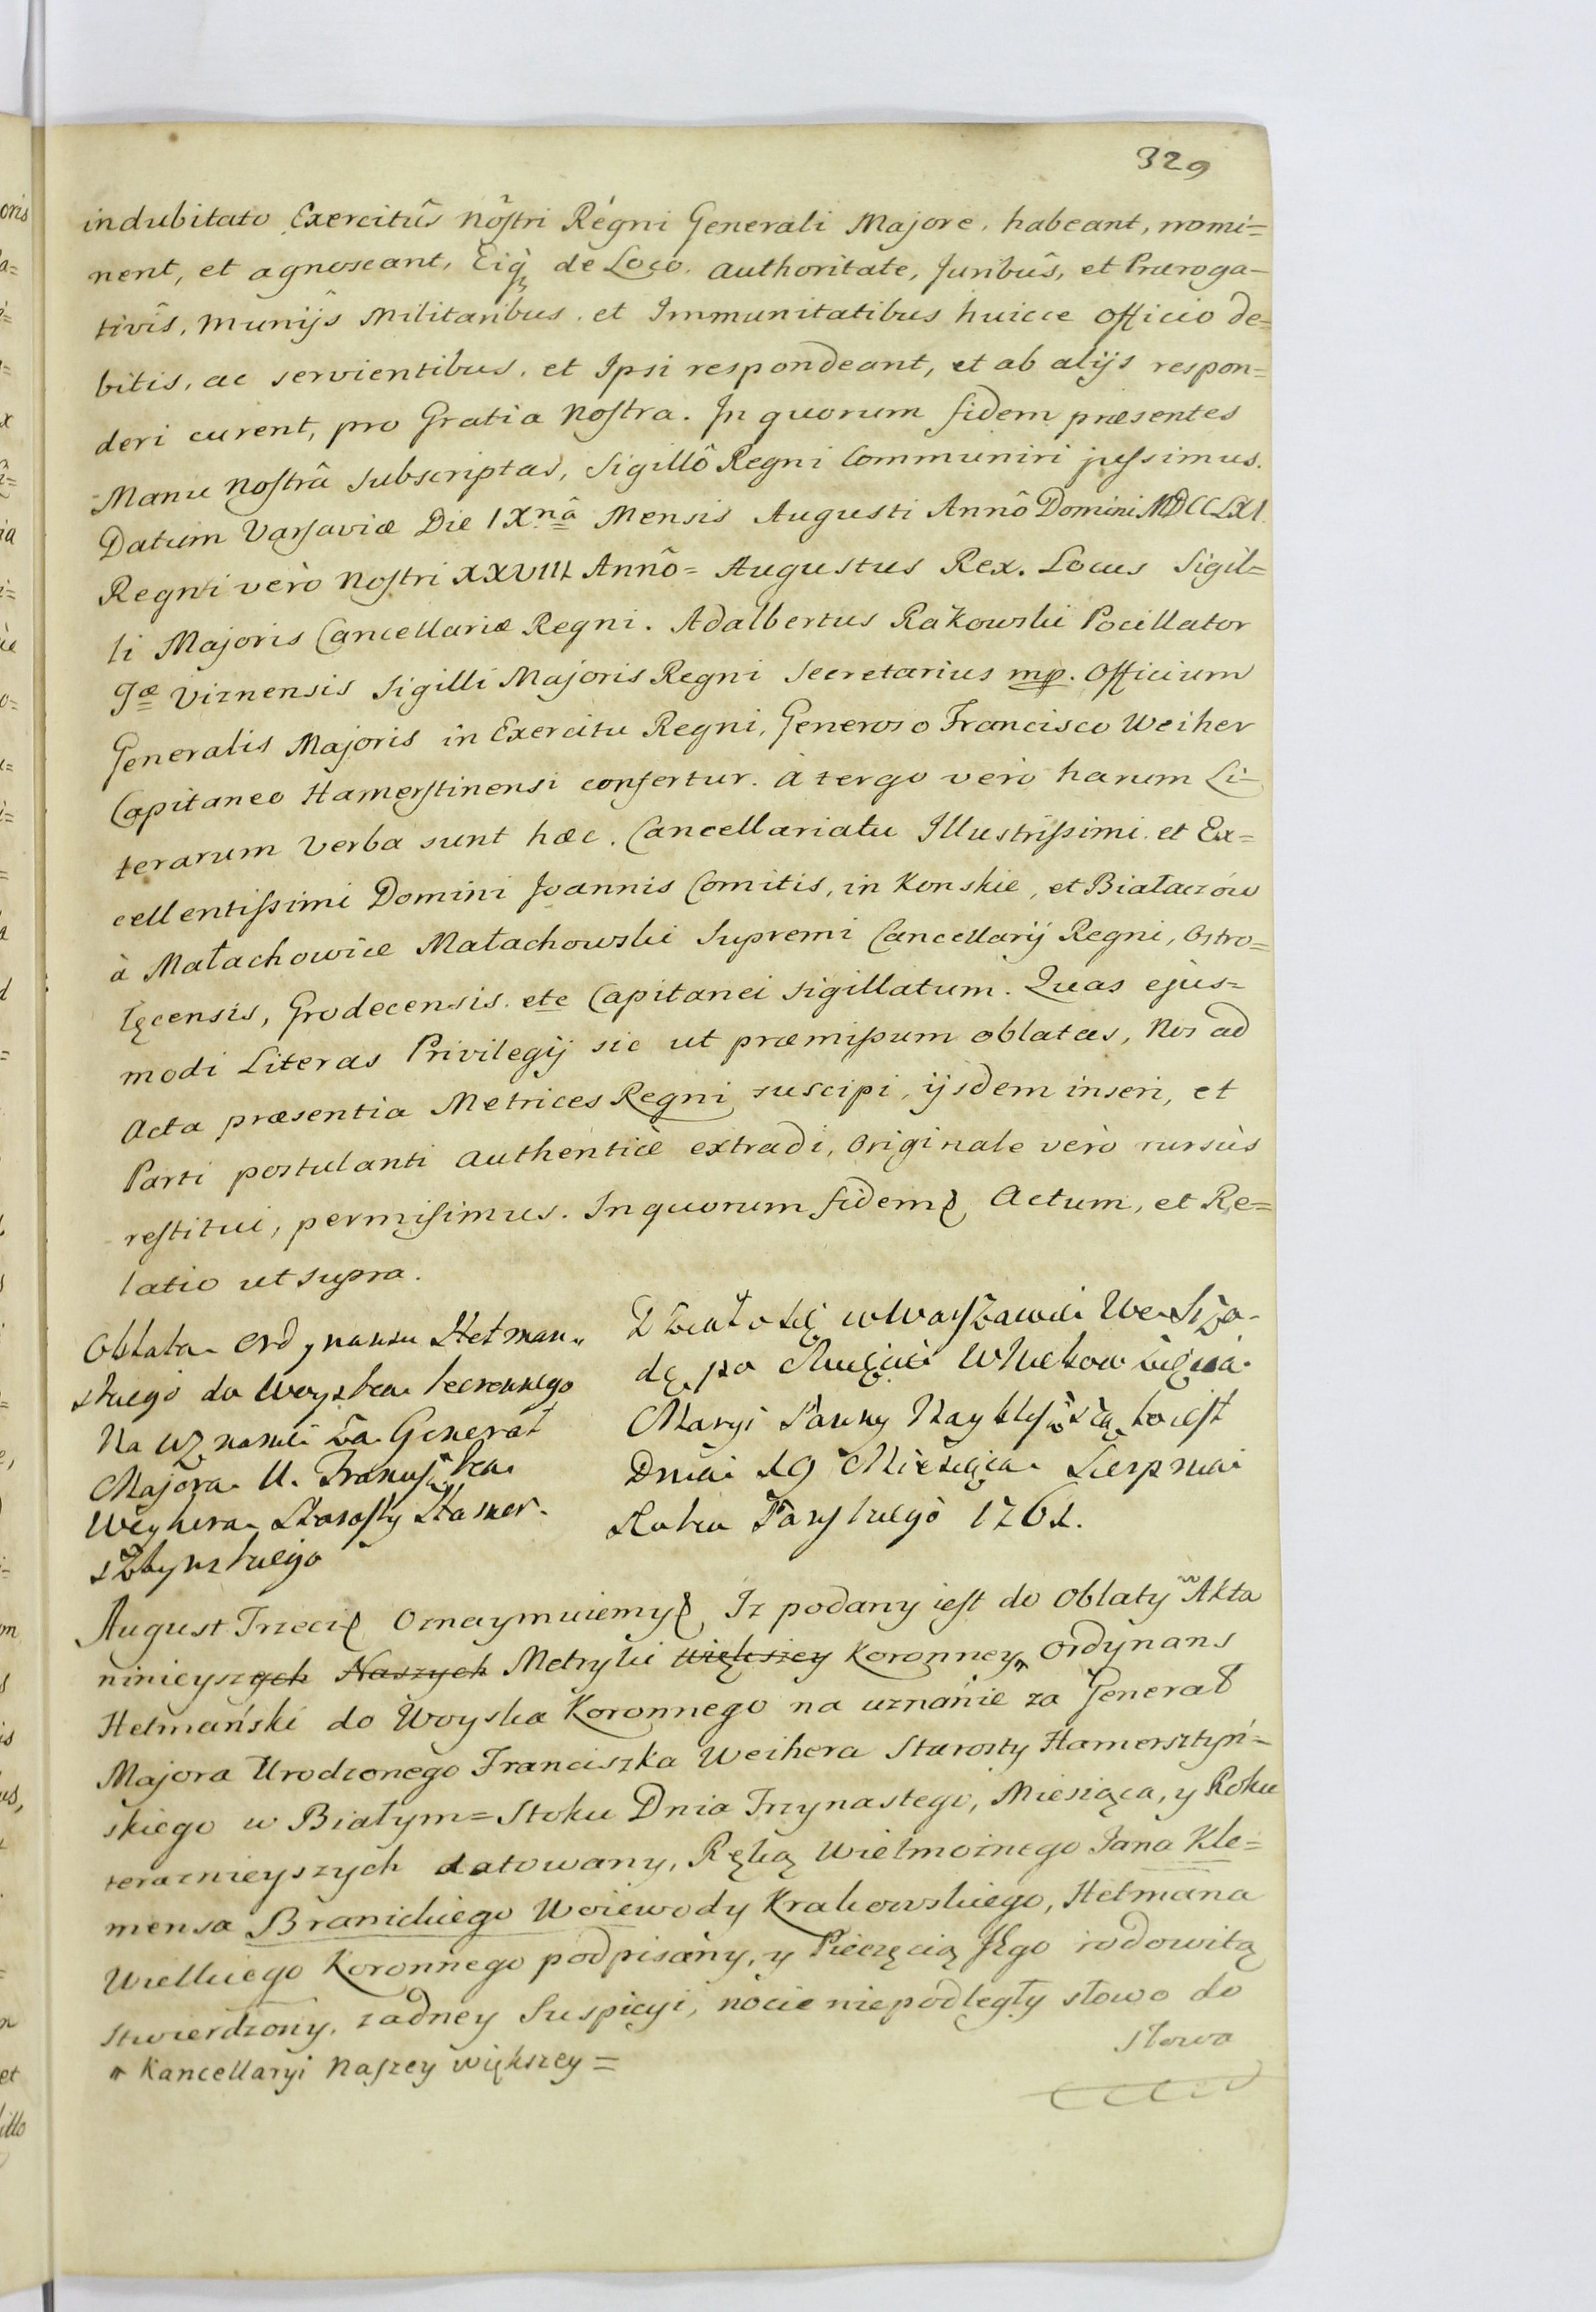 329
indubitato Exercitûs nôstri Régni Generali Majore, habeant, nomi=
nent, et agnoscant, Eiq̃ de Loco, authoritate, Juribûs, et Præroga-
tivîs, Munijs Militaribus, et Immunitatibus huicce Officio de=
bitis, ac servientibus, et Ipsi respondeant, et ab alijs respon=
deri curent, pro Gratia Nostra. In quorum fidem præsentes
Manu Nostrâ Subscriptas, Sigillô Regni Communiri jussimus.
Datum Varsaviæ Die IXnâ Mensis Augusti Annô Domini MDCCLXI.
Regni verò Nostri XXVIII Annô = Augustus Rex. Locus Sigil=
li Majoris Cancellariæ Regni. Adalbertus Rakowski Pocillator
Jæ Viznensis Sigilli Majoris Regni Secretarius mp. Officium
Generalis Majoris in Exercitu Regni, Generoso Francisco Weiher
Capitaneo Hamerstinensi confertur. à tergo verò harum Li-
terarum Verba sunt hæc. Cancellariatu Illustrissimi et Ex=
cellentissimi Domini Joannis Comitis, in Konskie, et Białaczów
à Małachowice Małachowski Supremi Cancellarij Regni, Ostro=
łęcensis, Grodecensis etc Capitanei sigillatum. Quas ejus=
modi Literas Privilegij sic ut præmissum oblatas, Nos ad
Acta præsentia Metrices Regni suscipi, ijsdem inseri, et
Parti postulanti authenticè extradi, Originale verò rursùs
restitui, permisimus. In quorum fidem Actum, et Re=
latio ut supra.
Oblata Ordynansu Hetman„
skiego do Woyska koronnego
Na uznanie za Generał
Majora U. Franciszka
Weyhera Starosty Hamer-
sztynskiego
Działo się w Warszawie We Srzo-
dę po Święcie WNiebowzięcia
Maryi Panny Naybliższą to iest
Dnia 19 Miesięca Sierpnia
Roku Pańskiego 1761.
August Trzeci Oznaymuiemy, Iż podany iest do Oblaty w Akta
ninieyszych Naszych Metryki większey Koronney„ Ordynans
Hetmański do Woyska Koronnego na uznanie za Generał
Majora Urodzonego Franciszka Weihera Starosty Hamersztyń=
skiego w Białym=Stoku Dnia Trzynastego, Miesiąca, y Roku
teraznieyszych datowany, Ręką Wielmożnego Jana Kle=
mensa Branickiego Woiewody Krakowskiego, Hetmana
Wielkiego Koronnego podpisany, y Pieczęcią Jego rodowitą
stwierdzony, żadney Suspicyi, nocie niepodległy słowo do
słowa
„ Kancellaryi Naszey większey =